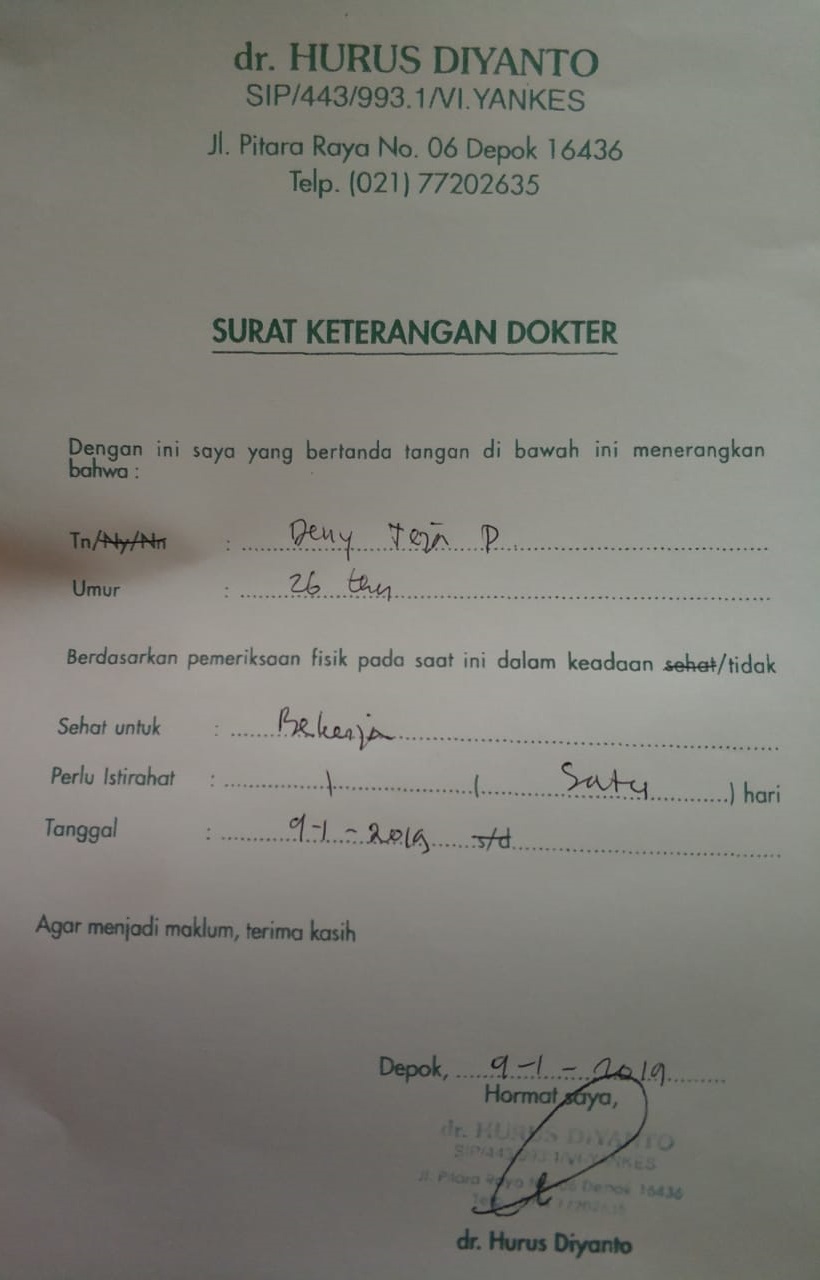 dr. HURUS DIYANTO
SIP/443/993.1/VI.YANKES
Jl. Pitara Raya No. 06 Depok 16436
Telp. (021) 77202635
SURAT KETERANGAN DOKTER
Dengan ini saya yang bertanda tangan di bawah ini menerangkan
bahwa :
Tn/Ny/Nn : Deny Teja P
Umur : 26 thn
Berdasarkan pemeriksaan fisik pada saat ini dalam keadaan sehat/tidak
Sehat untuk : Bekerja
Perlu Istirahat : 1 ( Satu ) hari
Tanggal : 9-1-2019 s/d
Agar menjadi maklum, terima kasih
Depok, 9-1-2019
Hormat saya,
dr. HURUS DIYANTO
SIP/443/993.1/VI.YANKES
Jl. Pitara Raya No. 06 Depok 16436
Telp. 77202635
dr. Hurus Diyanto